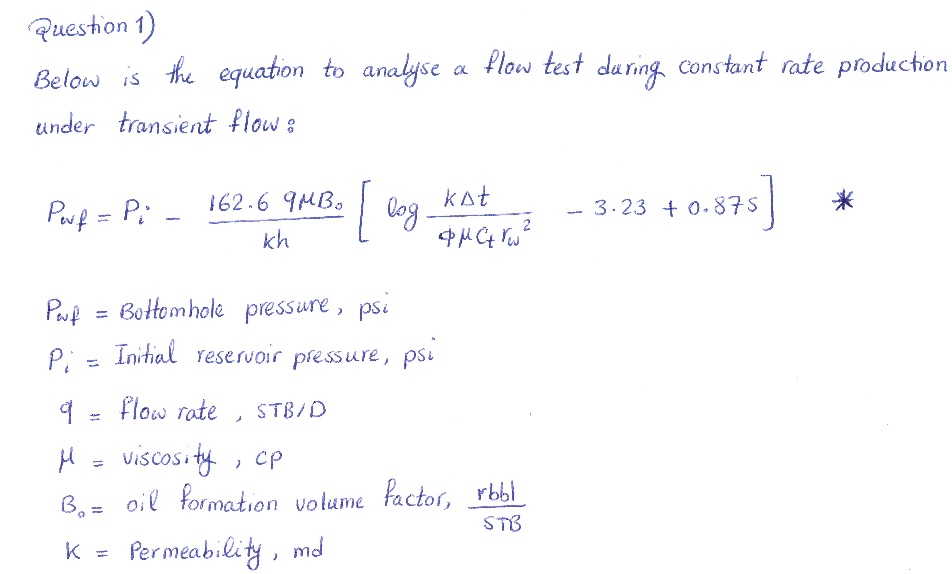 Question 1)
Below is the equation to analyse a flow test during constant rate production
under transient flow:
Pwf = Pi - 162.6 qμBo / kh [ log kΔt / φμCt rw² - 3.23 + 0.87s ] *
Pwf = Bottomhole pressure, psi
Pi = Initial reservoir pressure, psi
q = flow rate, STB/D
μ = viscosity, cp
Bo = oil formation volume factor, rbbl / STB
K = Permeability, md